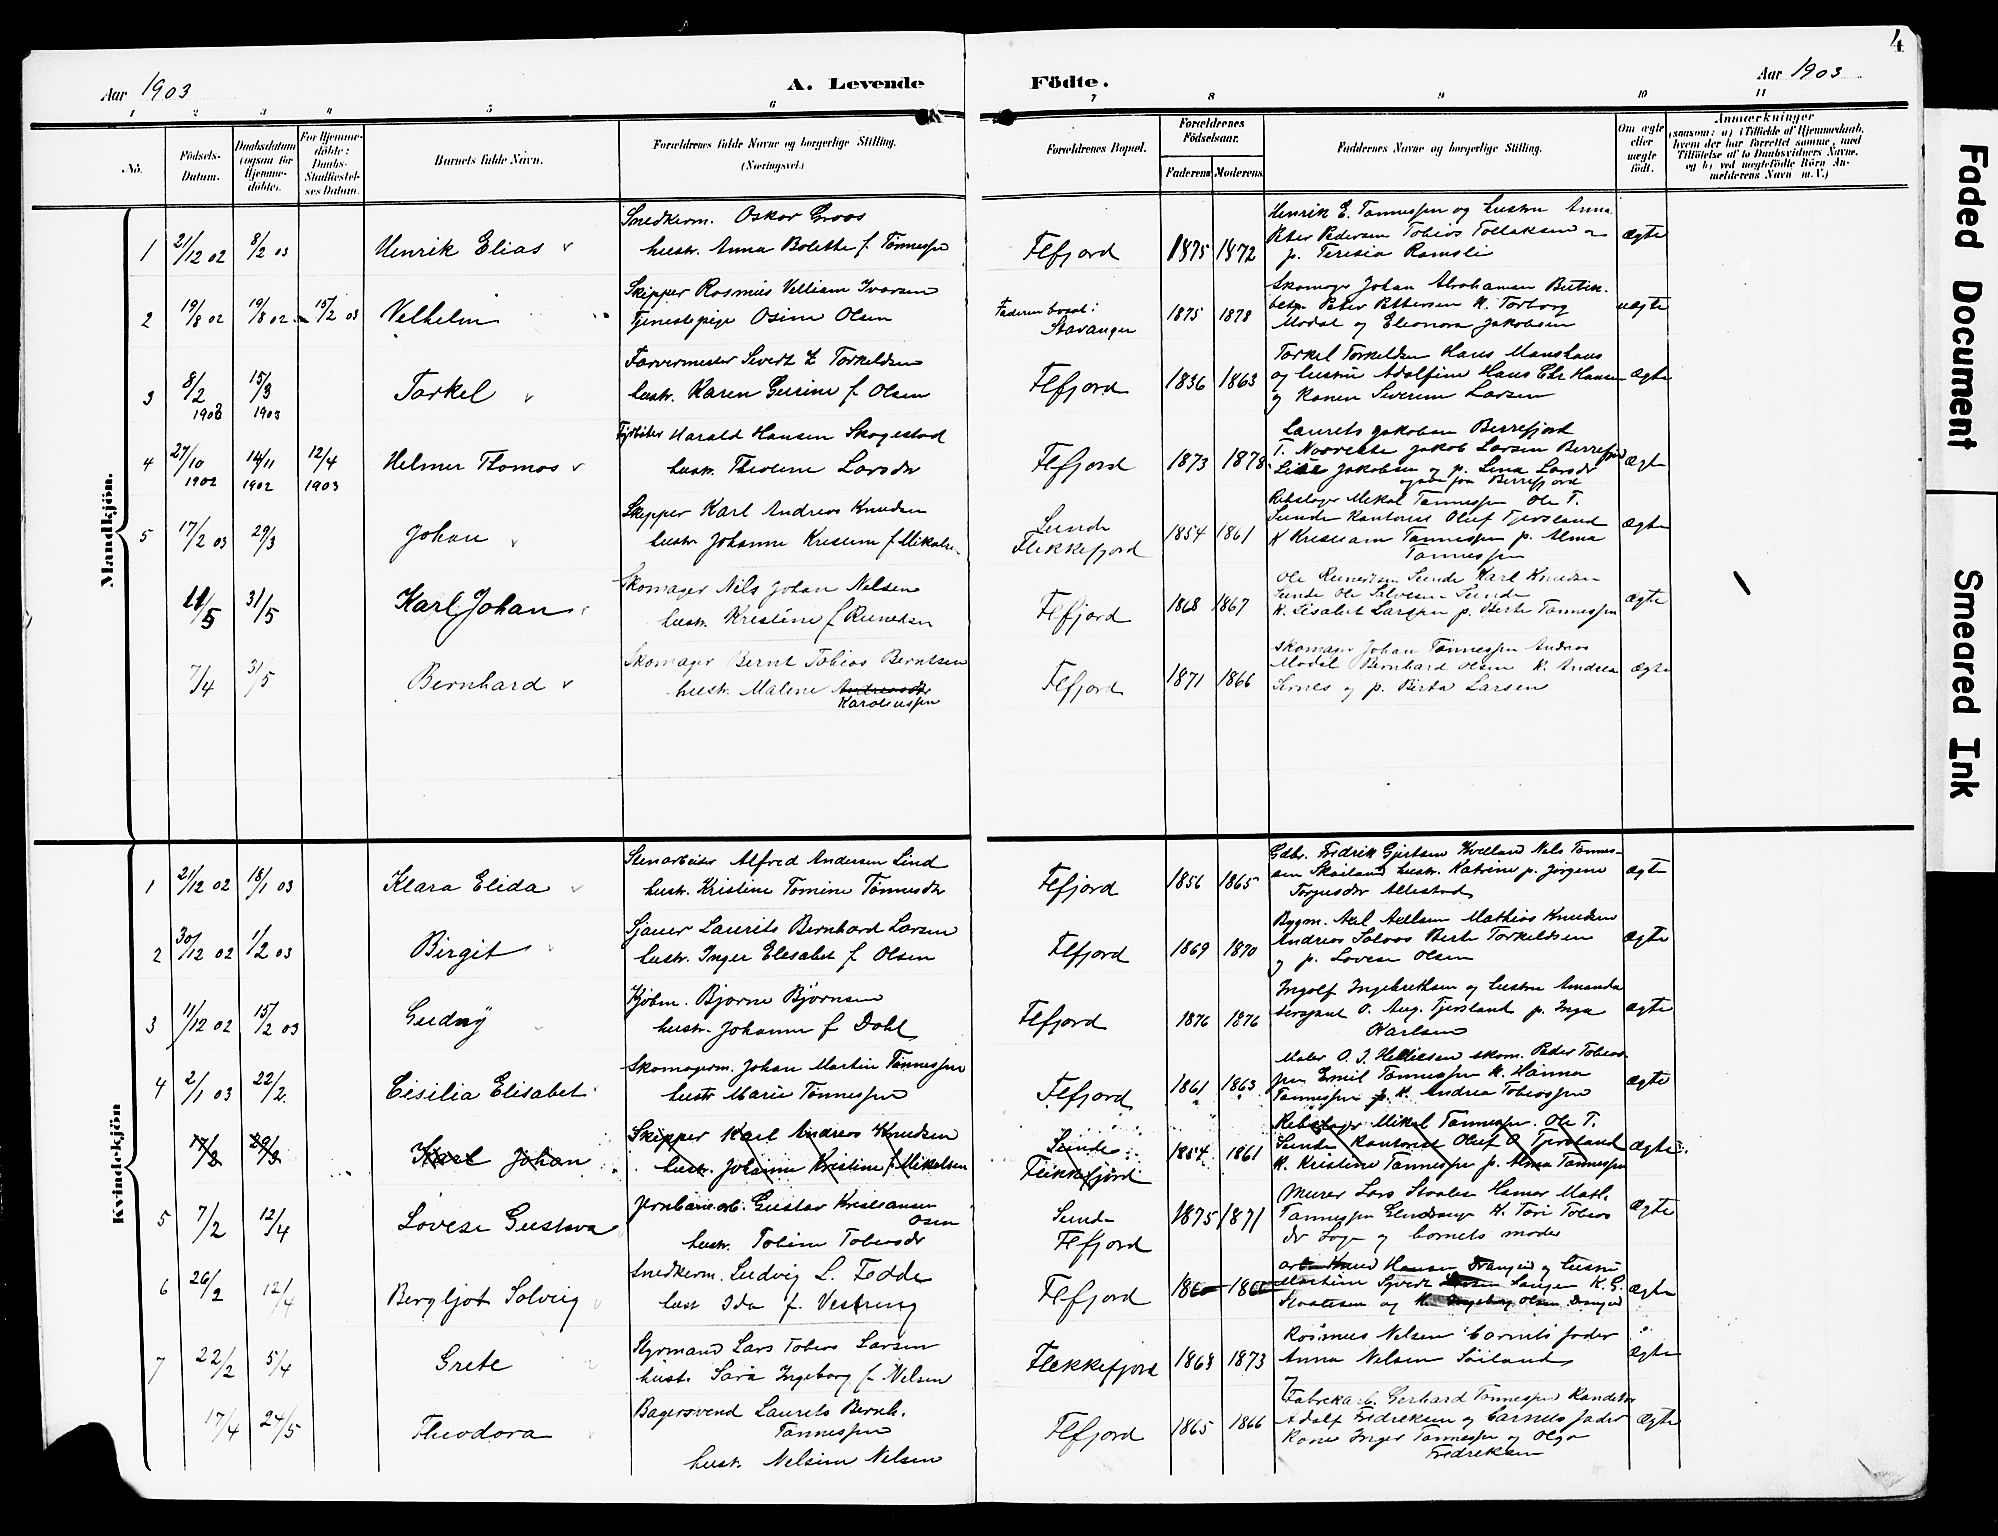 4
Aar 1903
A. Levende
Födte.
Aar 1903
1 2 3 4 5 6 7 8 9 10 11
No.
Födsels-
Datum.
Daabsdatum
(ogsaa for
Hjemme-
döbte).
For Hjemme-
döbte:
Daabs-
Stadfæstel-
ses Datum.
Barnets fulde Navn.
Forældrenes fulde Navne og borgerlige Stilling.
(Næringsvei.)
Forældrenes Bopæl.
Forældrenes
Födselsaar.
Faderens
Moderens
Faddernes Navne og borgerlige Stilling.
Om ægte
eller
uægte
födt.
Anmærkninger
(saasom: a) i Tilfælde af Hjemmedaab,
hvem der har forrettet samme, med
Tilföielse af to Daabsvidners Navne,
og b) ved uægtefödte Börn An-
melderens Navn m. V.)
Mandkjön.
1 21/12 02 8/2 03 Henrik Elias
Snedkerm. Oskar Groos
hustr. Anna Bolette f Tønnessen
Flfjord 1875 1872
Henrik E. Tønnessen og hustru Anna
Peter Pedersen Tobias Tollaksen
p. Teresia Ramsli
Ægte
2 19/8 02 19/8 02 15/2 03 Velhelm
Skipper Rasmus Velliam Ivarsen
Tjenestepige Osine Olsen
Faderen bosat i
Stavanger 1875 1878
Skomager Johan Abrahamsen
Peter Pettersen K. Torborg
Modal og Eleonora Jakobsen
uægte
3 8/2 1903 15/3 1903 Torkel
Farvermester Severt E Torkeldsen
hustr. Karen Gurine f Olsen
Flfjord 1836 1863
Torkel Torkeldsen Hans Manshaus
og hustru Adolfine Hans Chr Hansen
og Karen Severine Larsen
Ægte
4 27/10 1902 14/11 1902 12/4 1903 Helmer Thomas
Harald Hansen Skogestad
hustr. Theoline Larsdr
Flfjord 1873 1878
Laurits Jakobsen Berrefjord
Jakob Larsen Berrefjord
Jakobsen og p. Lina Larsdr
Berrefjord
Ægte
5 17/2 03 29/3 Johan
Skipper Karl Andreas Knudsen
hustr Johanne Kristine f Mikalsen
Sunde
Flekkefjord 1854 1861
Rebslager Mikal Tønnessen Ole T.
Sunde Kantorist Oluf Tjørsland
K Kristiane Tønnessen p. Alma
Tønnessen
Ægte
11/5 31/5 Karl Johan
Skomager Nils Johan Nelsen
hustr. Kristine f Reinertsen
Flfjord 1868 1867
Ole Reinertsen Sunde Karl Knudsen
Sunde Ole Salvesen Sunde
K. Lisabet Larsen p. Berte Tønnessen
Ægte
7/4 31/5 Bernhard
Skomager Bernt Tobias Berntsen
hustr. Malene Andreasdr
Karolussen
Flfjord 1871 1866
Skomager Johan Tønnessen Andreas
Modal Bernhard Olsen K. Andrea
og p. Berta Larsen
Ægte
Kvindekjön
1 21/12 02 18/1 03 Klara Elida
Stenarbeider Alfred Andersen Lind
hustr. Kristine Tomine Tønnesdr
Flfjord 1856 1865
Gdbr. Fredrik Gjertsen Kvelland Nils Tønnes-
sen Skailand hustr. Katrine p. Jørgine
Torgusdr Allestad
Ægte
2 30/12 02 1/2 03 Birgit
Sjauer Laurits Bernhard Larsen
hustr. Inger Elesabet f Olsen
Flfjord 1869 1870
Bygm. Axel Axelsen Mathias Knudsen
Andreas Salvos Berte Torkeldsen
og p. Lovese Olsen
Ægte
3 11/12 02 15/2 03 Gudny
Kjøbm. Bjarne Bjørnsen
hustr. Johanne f Dahl
Flfjord 1876 1876
Ingolf Ingebrektsen og hustru Amanda
sersjant O. Aug. Tjørsland p. Inga
Karlsen
Ægte
4 2/1 03 22/2. Cisilia Elisabet
Skomagerm. Johan Martin Tønnessen
hustr Marie Tønnessen
Flfjord 1861 1863
Maler O. J. Helliesen skom. Peder Tobias-
sen Emil Tønnessen K. Hanna
Tønnessen p. K. Andrea Tobiassen
Ægte
17/2 29/3 Karl Johan
Skipper Karl Andreas Knudsen
hustr. Johanne Kristine f Mikalsen
Sunde
Flekkefjord 1854 1861
Rebslager Mikal Tønnessen. Ole T.
Sunde Kantorist Oluf O Tjørsland
K. Kristine Tønnessen p. Alma Tønnessen
Ægte
5 7/2 12/4 Lovese Gustava
Jernbanearb. Gustav Kristiansen
Osen
hustr. Tobine Tobiasdr
Sunde
Flfjord 1875 1871
Murer Lars Staalesen Hamar Math.
Tønnessen K. Tori Tobias
dr Loga og barnets moder
Ægte
6 26/2 12/4 Bergljot Solveig
Snedkerm. Ludvig L. Fedde
hust Ida f. Vestreng
Flfjord
Hansen Drangeid og hustru
Martine K. G.
Staalesen og K. Ingeborg Olsen Drangeid
Ægte
7 22/2 5/4 Grete
Styrmand Lars Tobias Larsen
hustr. Sara Ingeborg f Nelsen
Flekkefjord 1863 1873
Rasmus Nelsen barnets fader
Anna Nelsen Søiland
Ægte
17/4 24/5 Theodora
Bagersvend Laurits Bernh.
Tønnessen
hustr. Nelsine Nelsen
Flfjord 1865 1866
Fabrikarb. Gerhard Tønnessen
Adolf Fredriksen og barnets fader
Kone Inger Tønnessen og Olga
Fredriksen
Ægte
Faded Document
Smeared Ink